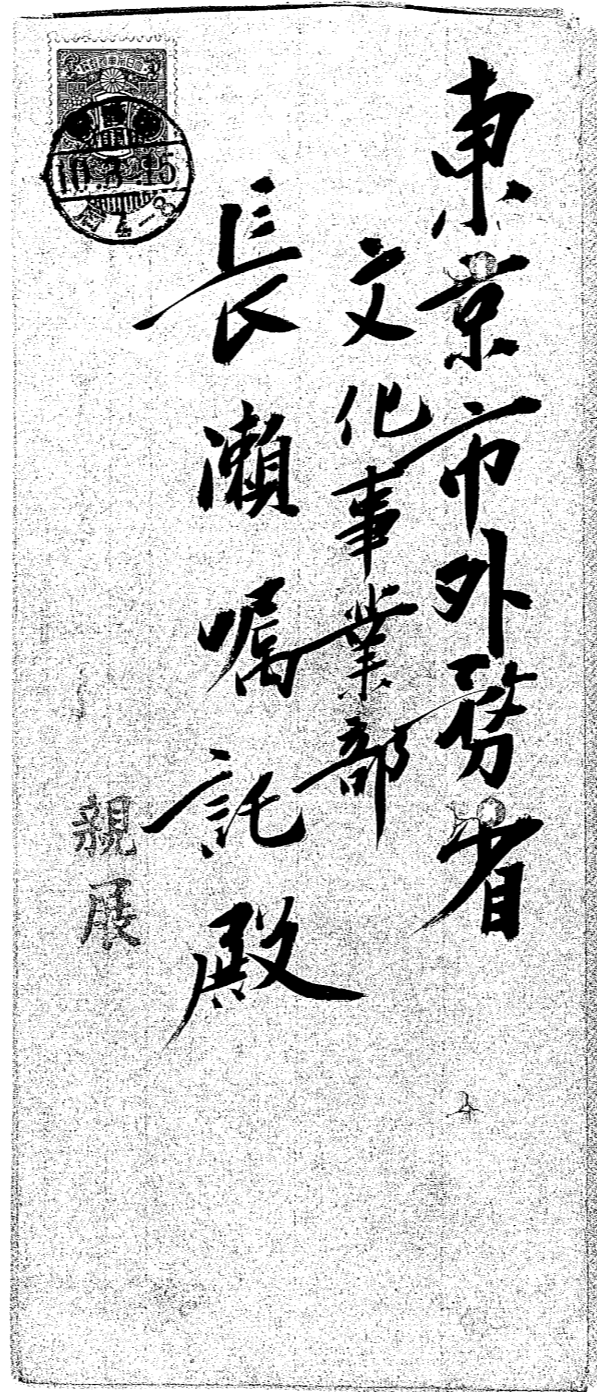 東京市外務省
文化事業部
長瀬嘱託殿
親展
10.3.15